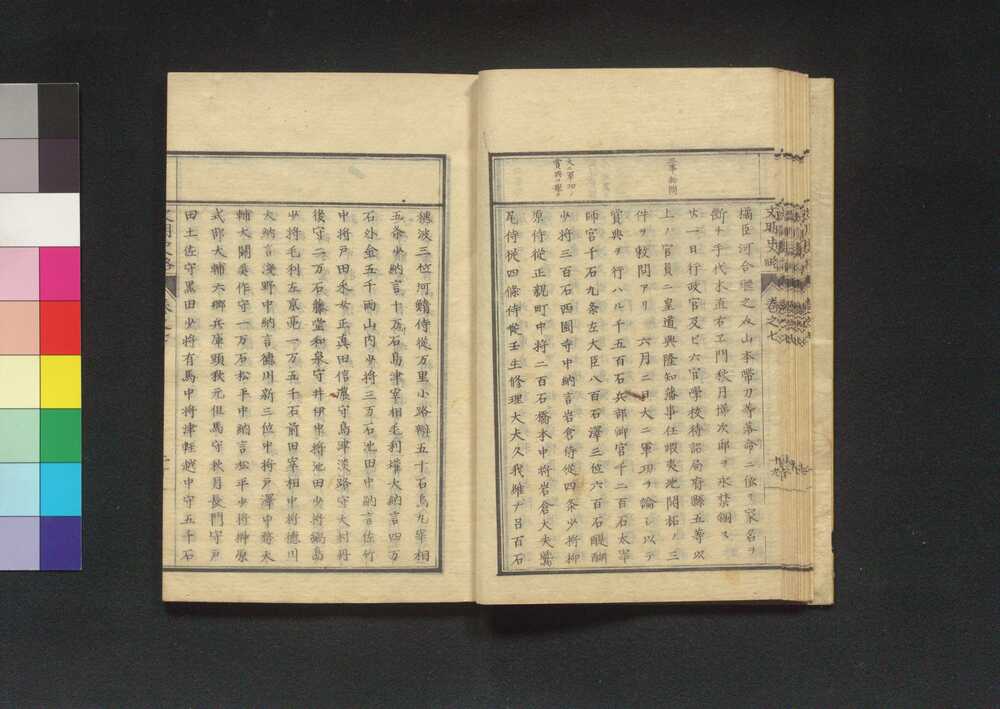 文明史略
卷之七
三事勅問
大ニ軍功ノ賞典ヲ擧ク
播臣河合ノ山本帶刀等落命ニ依テ家名ヲ
斷チ手代木直右エ門秋月悌次郎ヲ永禁錮ス
廿一日行政官及ヒ六官學校待詔局府縣五等以
上ノ官員ニ皇道興隆知藩事任蝦夷地開拓ノ三
件ヲ敕問アリ 六月二日大ニ軍功ヲ論シ以テ
賞典ヲ行ハル千五百石兵部卿宮千二百石太宰
師宮千石九条左大臣八百石澤三位六百石醍醐
少將三百石西園寺中納言岩倉侍從四条少將柳
原侍從正親町中將二百石橋本中將岩倉大夫鷲
尾侍從四條侍從壬生修理大夫久我維麿百石
穗波三位河鰭侍從万里小路辨五十石烏丸宰相
五条少納言十万石島津宰相毛利權大納言四万
石外金五千兩山内少將三万石池田中納言佐竹
中將戸田采女正真田信濃守島津淡路守大村丹
後守二万石藤堂和泉守井伊中將池田少將鍋島
少將毛利左京亮一万五千石前田宰相中將德川
大納言淺野中納言德川新三位中將戸澤中務大
輔大關美作守一万石松平中納言松平少將榊原
式部大輔六鄉兵庫頭秋元但馬守秋月長門守戸
田土佐守黑田少將有馬中將津輕越中守五千石